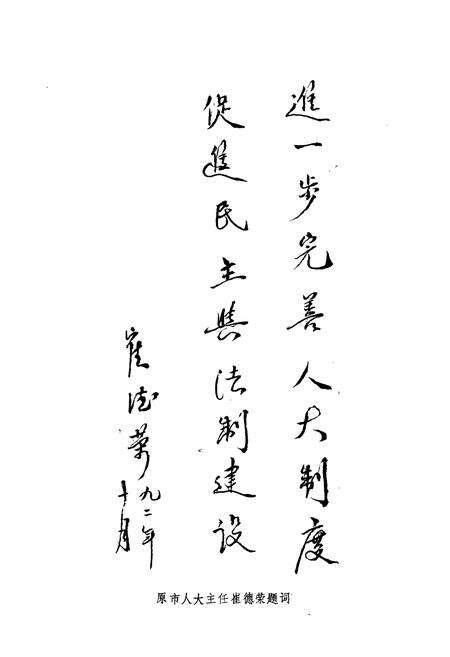 進一步完善人大制度
促進民主與法制建设
崔德荣
九二年
十月
原市人大主任崔德荣题词